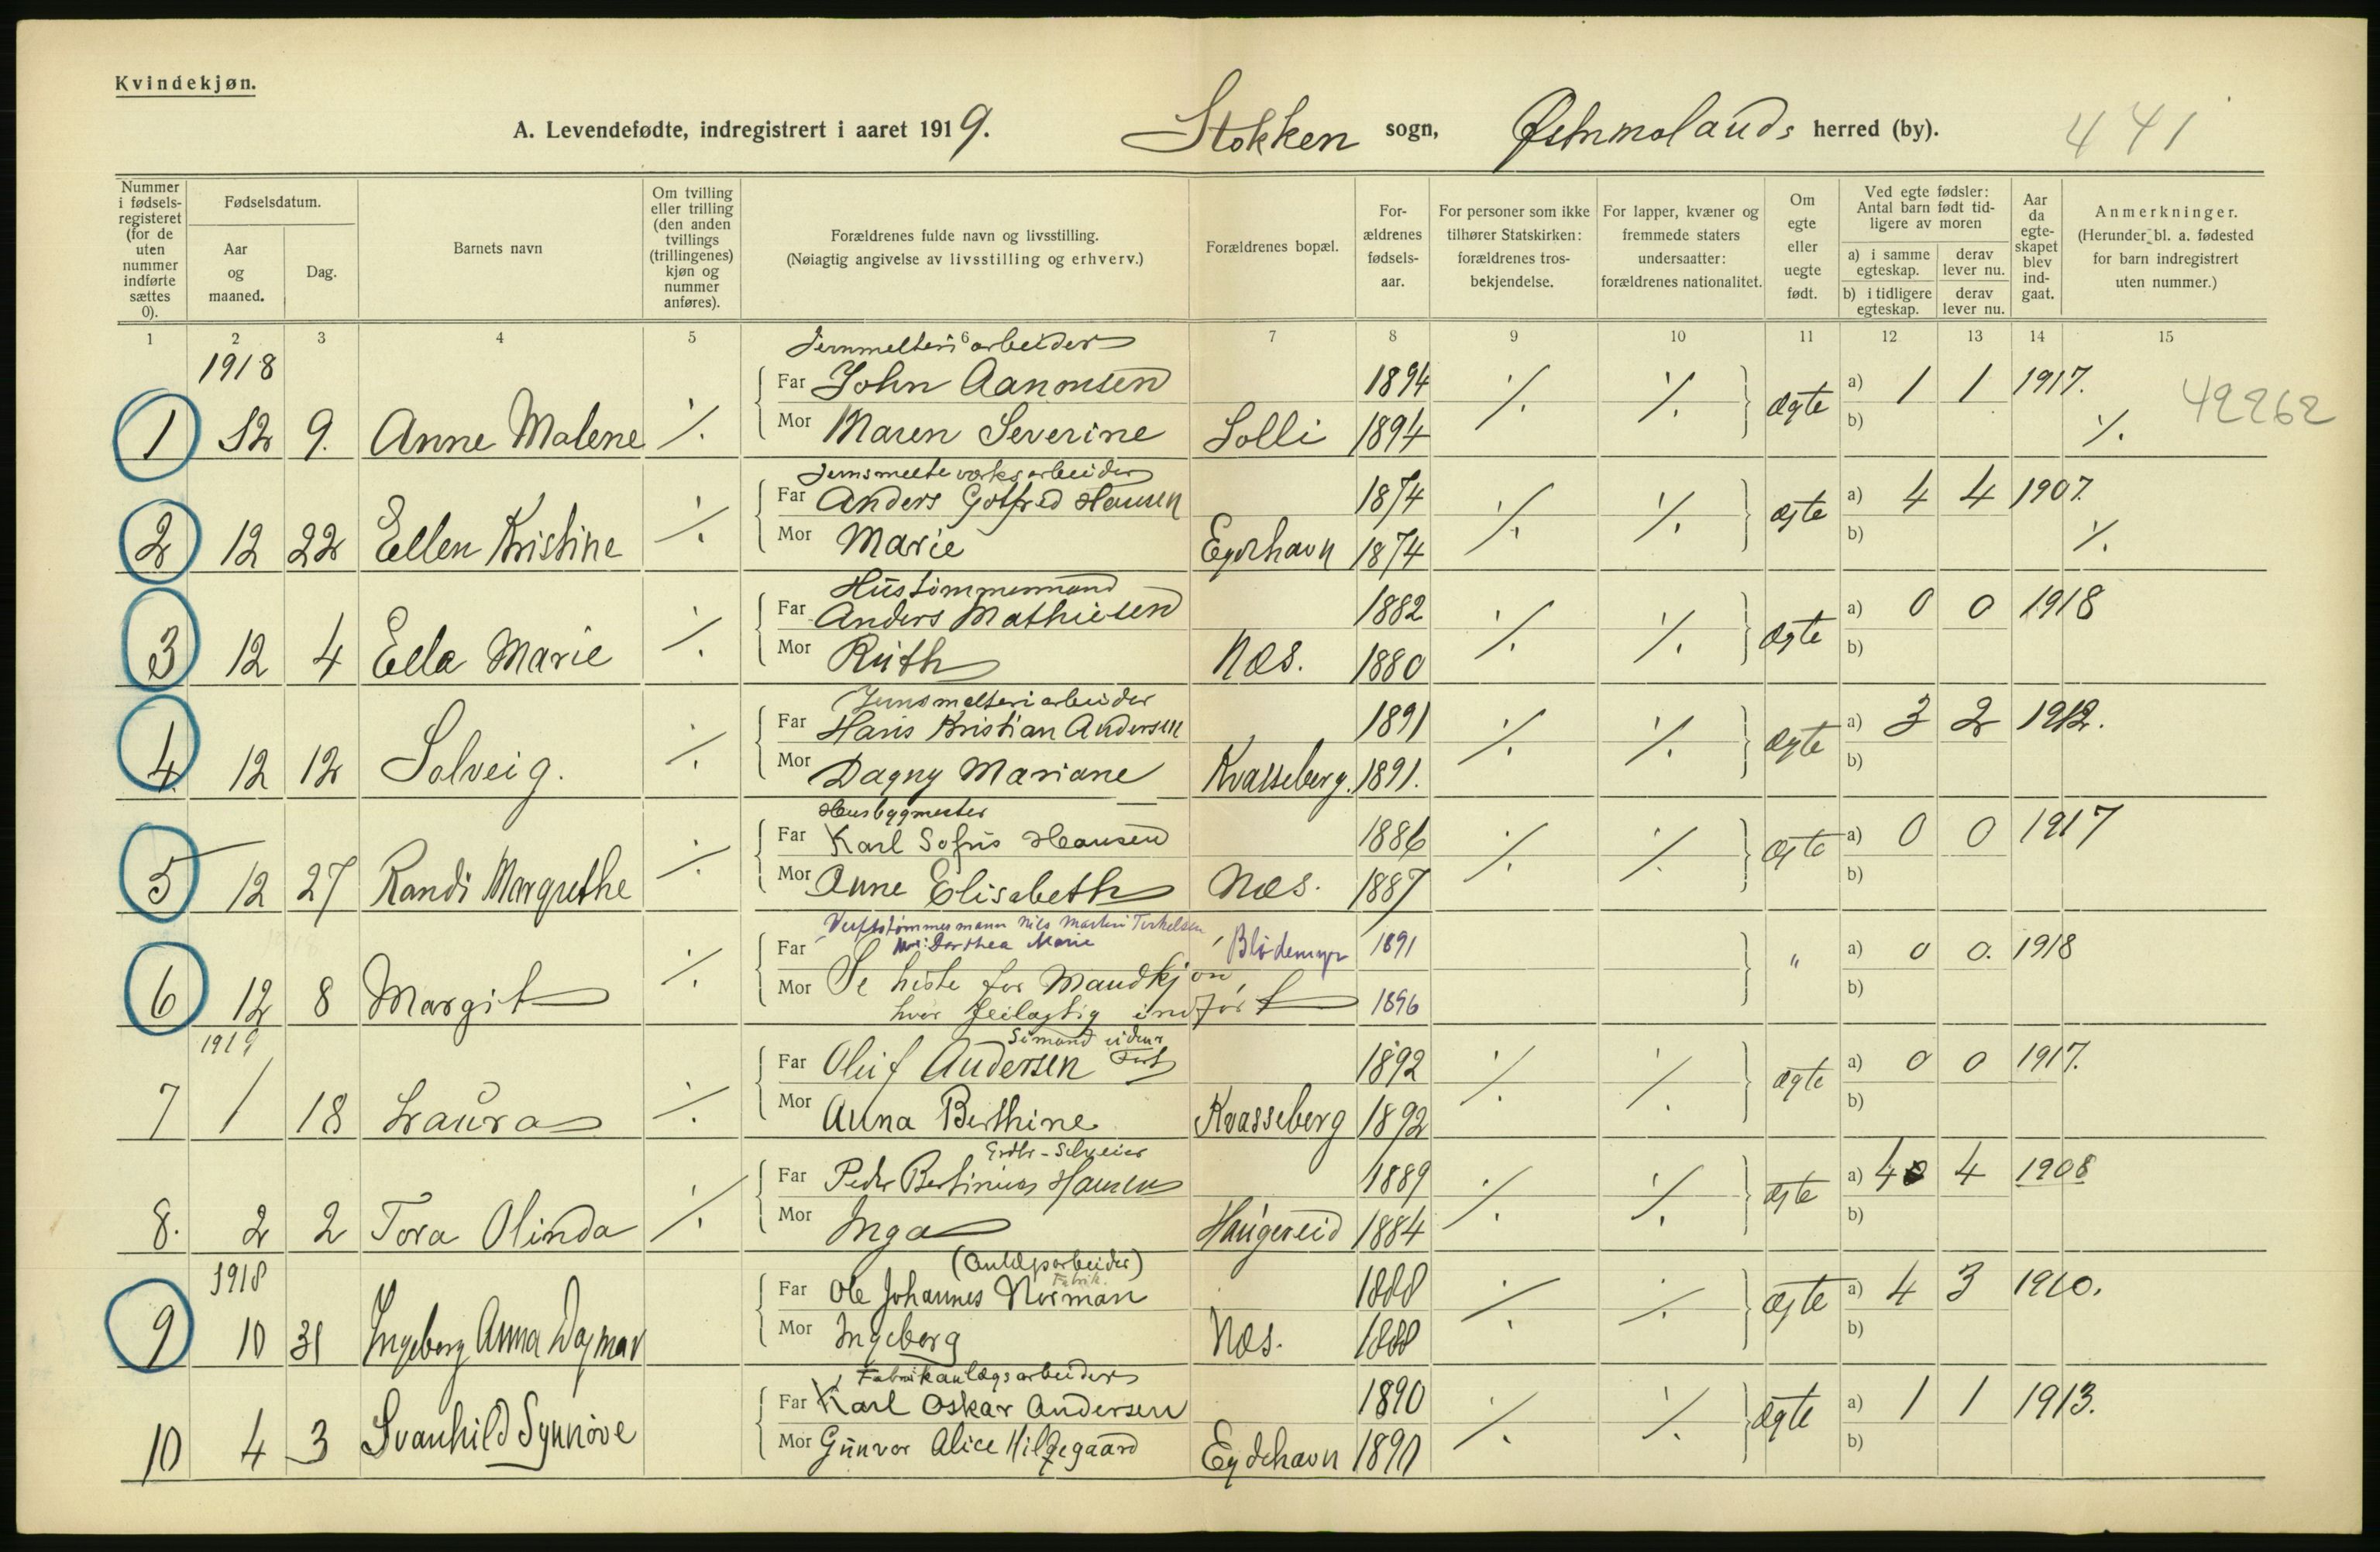 Kvindekjøn.
A. Levendefødte, indregistrert i aaret 1919. Stokken sogn, herred (by). 441
Nummer i fødsels-registeret (for de uten nummer indførte sættes 0).
Fødselsdatum.
Aar og maaned.
Dag.
Barnets navn
Om tvilling eller trilling (den anden tvillings (trillingenes) kjøn og nummer anføres).
Forældrenes fulde navn og livsstilling. (Nøiagtig angivelse av livsstilling og erhverv.)
Forældrenes bopæl.
For-ældrenes fødsels-aar.
For personer som ikke tilhører Statskirken: forældrenes tros-bekjendelse.
For lapper, kvæner og fremmede staters undersaatter: forældrenes nationalitet.
Om egte eller uegte født.
Ved egte fødsler: Antal barn født tid-ligere av moren
a) i samme egteskap. derav lever nu.
b) i tidligere egteskap. derav lever nu.
Aar da egte-skapet blev ind-gaat.
Anmerkninger. (Herunder bl. a. fødested for barn indregistrert uten nummer.)
1 2 3 4 5 6 7 8 9 10 11 12 13 14 15
1918 Jernmelteriarbeider
Far John Aanonsen 1894 ./. ./. ægte a) 1 1 1917. 42262
1 12 9. Anne Malene ./. Mor Maren Severine Solli 1894 b) ./.
Jernsmelteverksarbeider
Far Anders Gotfred Hansen 1874 ./. ./. ægte a) 4 4 1907.
2 12 22 Ellen Kristine ./. Mor Marie Eydehavn 1874 b) ./.
Hustømmermand
Far Anders Mathiesen 1882 ./. ./. ægte a) 0 0 1918
3 12 4 Ella Marie ./. Mor Ruth Næs. 1880 b)
Jernsmelteriarbeider
Far Hans Kristian Andersen 1891 ./. ./. ægte a) 3 2 1912.
4. 12 12 Solveig. ./. Mor Dagny Mariane Kvasseberg. 1891. b)
Husbygmester
Far Karl Sofus Hansen 1886 ./. ./. ægte a) 0 0 1917
5 12 27 Randi Margrethe ./. Mor Anne Elisabeth Næs. 1887 b)
Verftstømmermann Nils Martin Terkelsen
Far Mor: Dorthea Marie Blødemyr 1891 " a) 0 0. 1918
6 12 8 Margit ./. Mor Se liste for Mandkjøn 1896 b)
hvor feilagtig indført
1919
Far Oluf Andersen 1892 ./. ./. ægte a) 0 0 1917.
7 1 18 Laura ./. Mor Anna Berthine Kvasseberg 1892 b)
Far Peder Bertinius Hansen 1889 ./. ./. ægte a) 4 4 1908
8. 2 2 Tora Olinda ./. Mor Inga Haugereid 1884 b)
1918 (Anlægsarbeider)
Fabrik.
Far Ole Johannes Norman 1888 ./. ./. ægte a) 4 3 1910.
9 10 31 Ingeborg Anna Dagmar Mor Ingeborg Næs. 1888 b)
Fabrikanlægsarbeider
Far Karl Oskar Andersen 1890 ./. ./. ægte a) 1 1 1913.
10 4 3 Svanhild Synnøve Mor Gunvor Alice Hildegaard Eydehavn 1890 b)